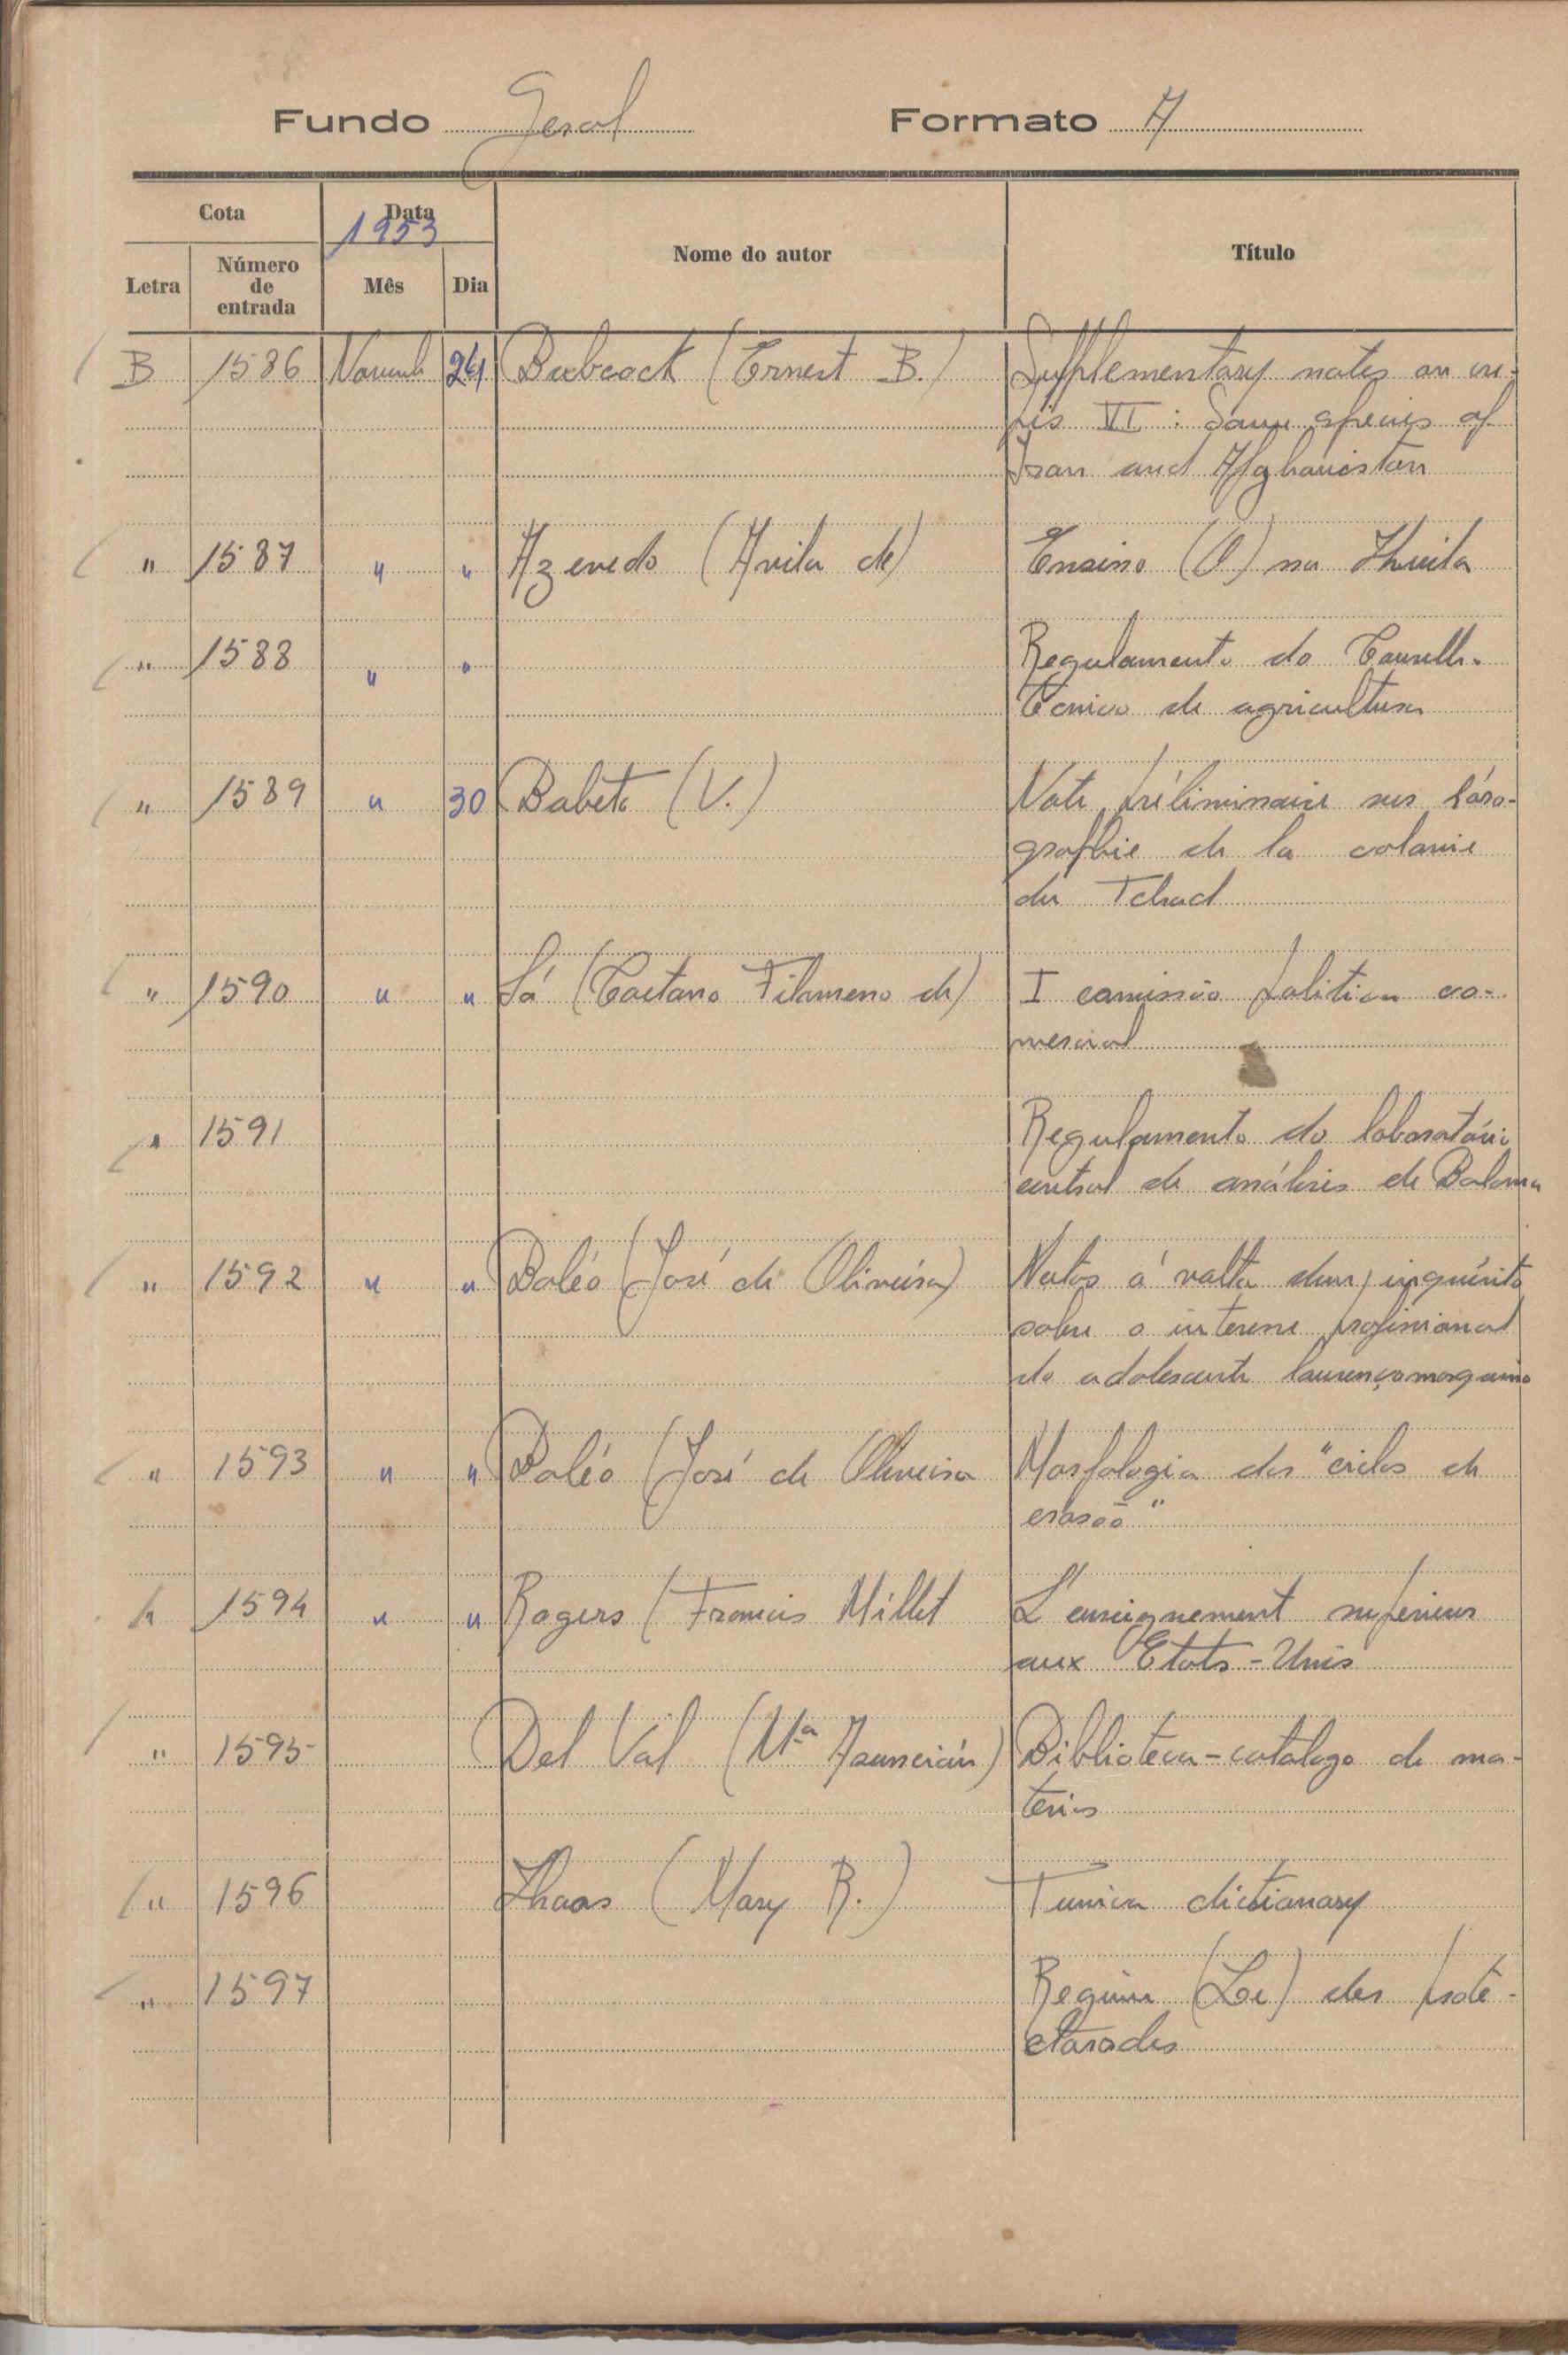 Fundo Geral Formato A
Cota Data Nome do autor Título
1953
Letra Número de entrada Mês Dia
B 1586 Novemb 24 Babcock (Ernest B.) Supplementary notes on cre-
pis VI : Some species of
Iran and Afghanistan
" 1587 " " Azevedo (Avila de) Ensino (O) na Huila
" 1588 " " Regulamento do Conselho
Tecnico de agricultura
" 1589 " 30 Babet (V.) Note préliminaire sur l'oro-
graphie de la colonie
du Tchad
" 1590 " " Sá (Caetano Filomeno de) I comissão politica co-
mercial
" 1591 Regulamento do laboratório
central de análises de Bolama
" 1592 " " Boléo (José de Oliveira) Notas á volta dum inquérito
sobre o interesse profissional
do adolescente lourençomarquino
" 1593 " " Boléo (José de Oliveira Morfologia dos "ciclos de
erosão"
" 1594 " " Rogers (Francis Millet L'enseignement supérieur
aux Etats-Unis
" 1595 Del Val (Mª Asunción) Biblioteca-catálogo de ma-
terias
" 1596 Haas (Mary R.) Tunica dictionary
" 1597 Regime (Le) des proté-
ctorades